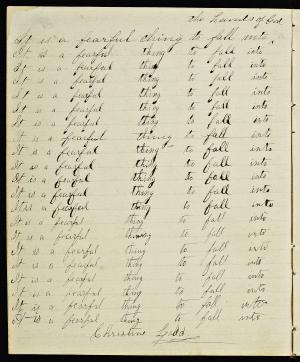 the hands of God
It is a fearful thing to fall into
It is a fearful thing to fall into
It is a fearful thing to fall into
It is a fearful thing to fall into
It is a fearful thing to fall into
It is a fearful thing to fall into
It is a fearful thing to fall into
It is a fearful thing to fall into
It is a fearful thing to fall into
It is a fearful thing to fall into
It is a fearful thing to fall into
It is a fearful thing to fall into
It is a fearful thing to fall into
It is a fearful thing to fall into
It is a fearful thing to fall into
It is a fearful thing to fall into
It is a fearful thing to fall into
It is a fearful thing to fall into
It is a fearful thing to fall into
It is a fearful thing to fall into
It is a fearful thing to fall into
Christine Ladd